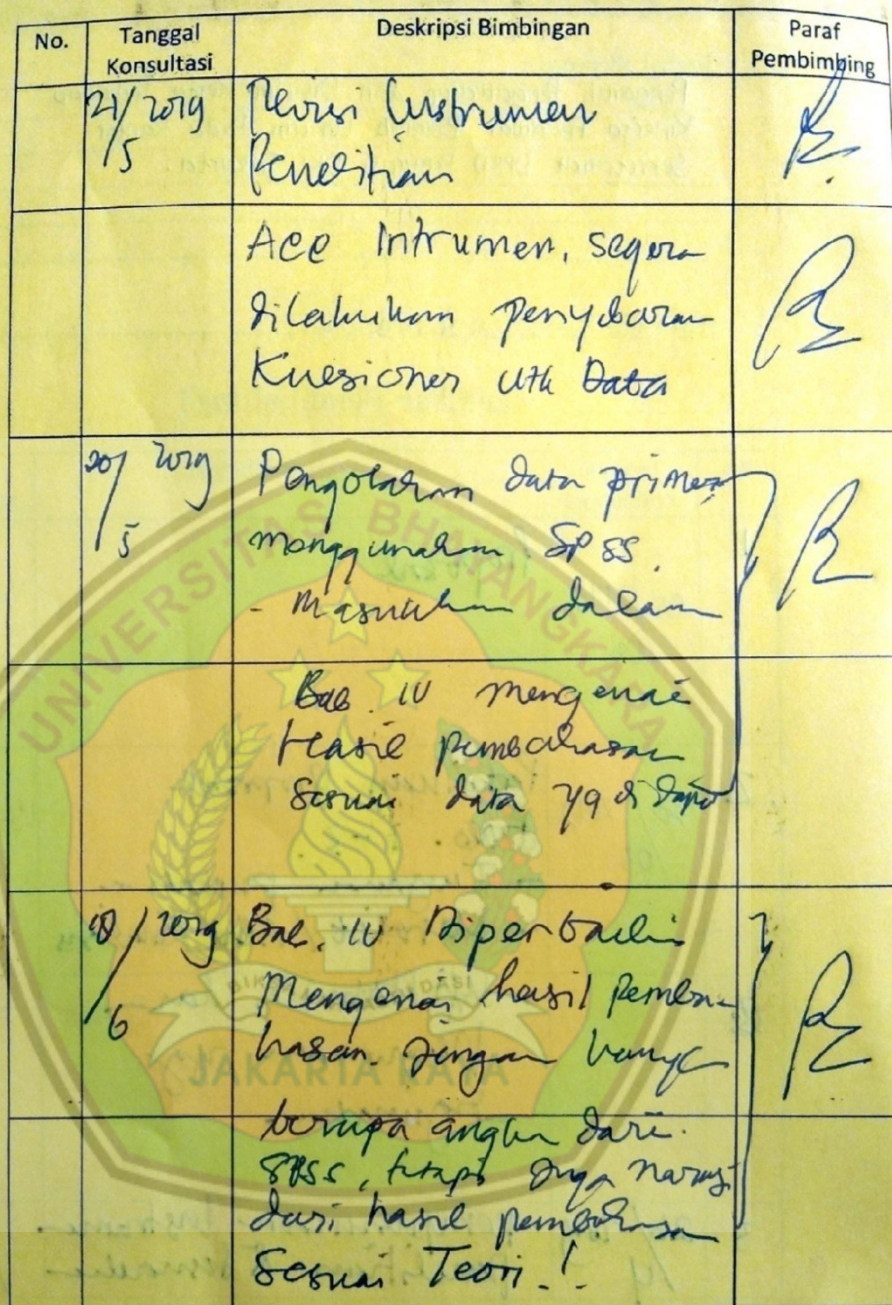 No. Tanggal Konsultasi Deskripsi Bimbingan Paraf Pembimbing
21/5 2019 Revisi Instrumen
Penelitian
Acc Intrumen, segera
dilakukan penyebaran
Kuesioner utk Data
20/5 2019 Pengolahan data primer
menggunakan SPSS.
- Masukkan dalam
Bab IV mengenai
Hasil pembahasan
Sesuai data yg di dapat
18/6 2019 Bab. IV Diperbaiki
Mengenai hasil Pemba-
hasan. Jangan hanya
berupa angka dari
SPSS, tetapi juga narasi
dari hasil pembahasan
Sesuai Teori.!
UNIVERSITAS BHAYANGKARA
JAKARTA RAYA